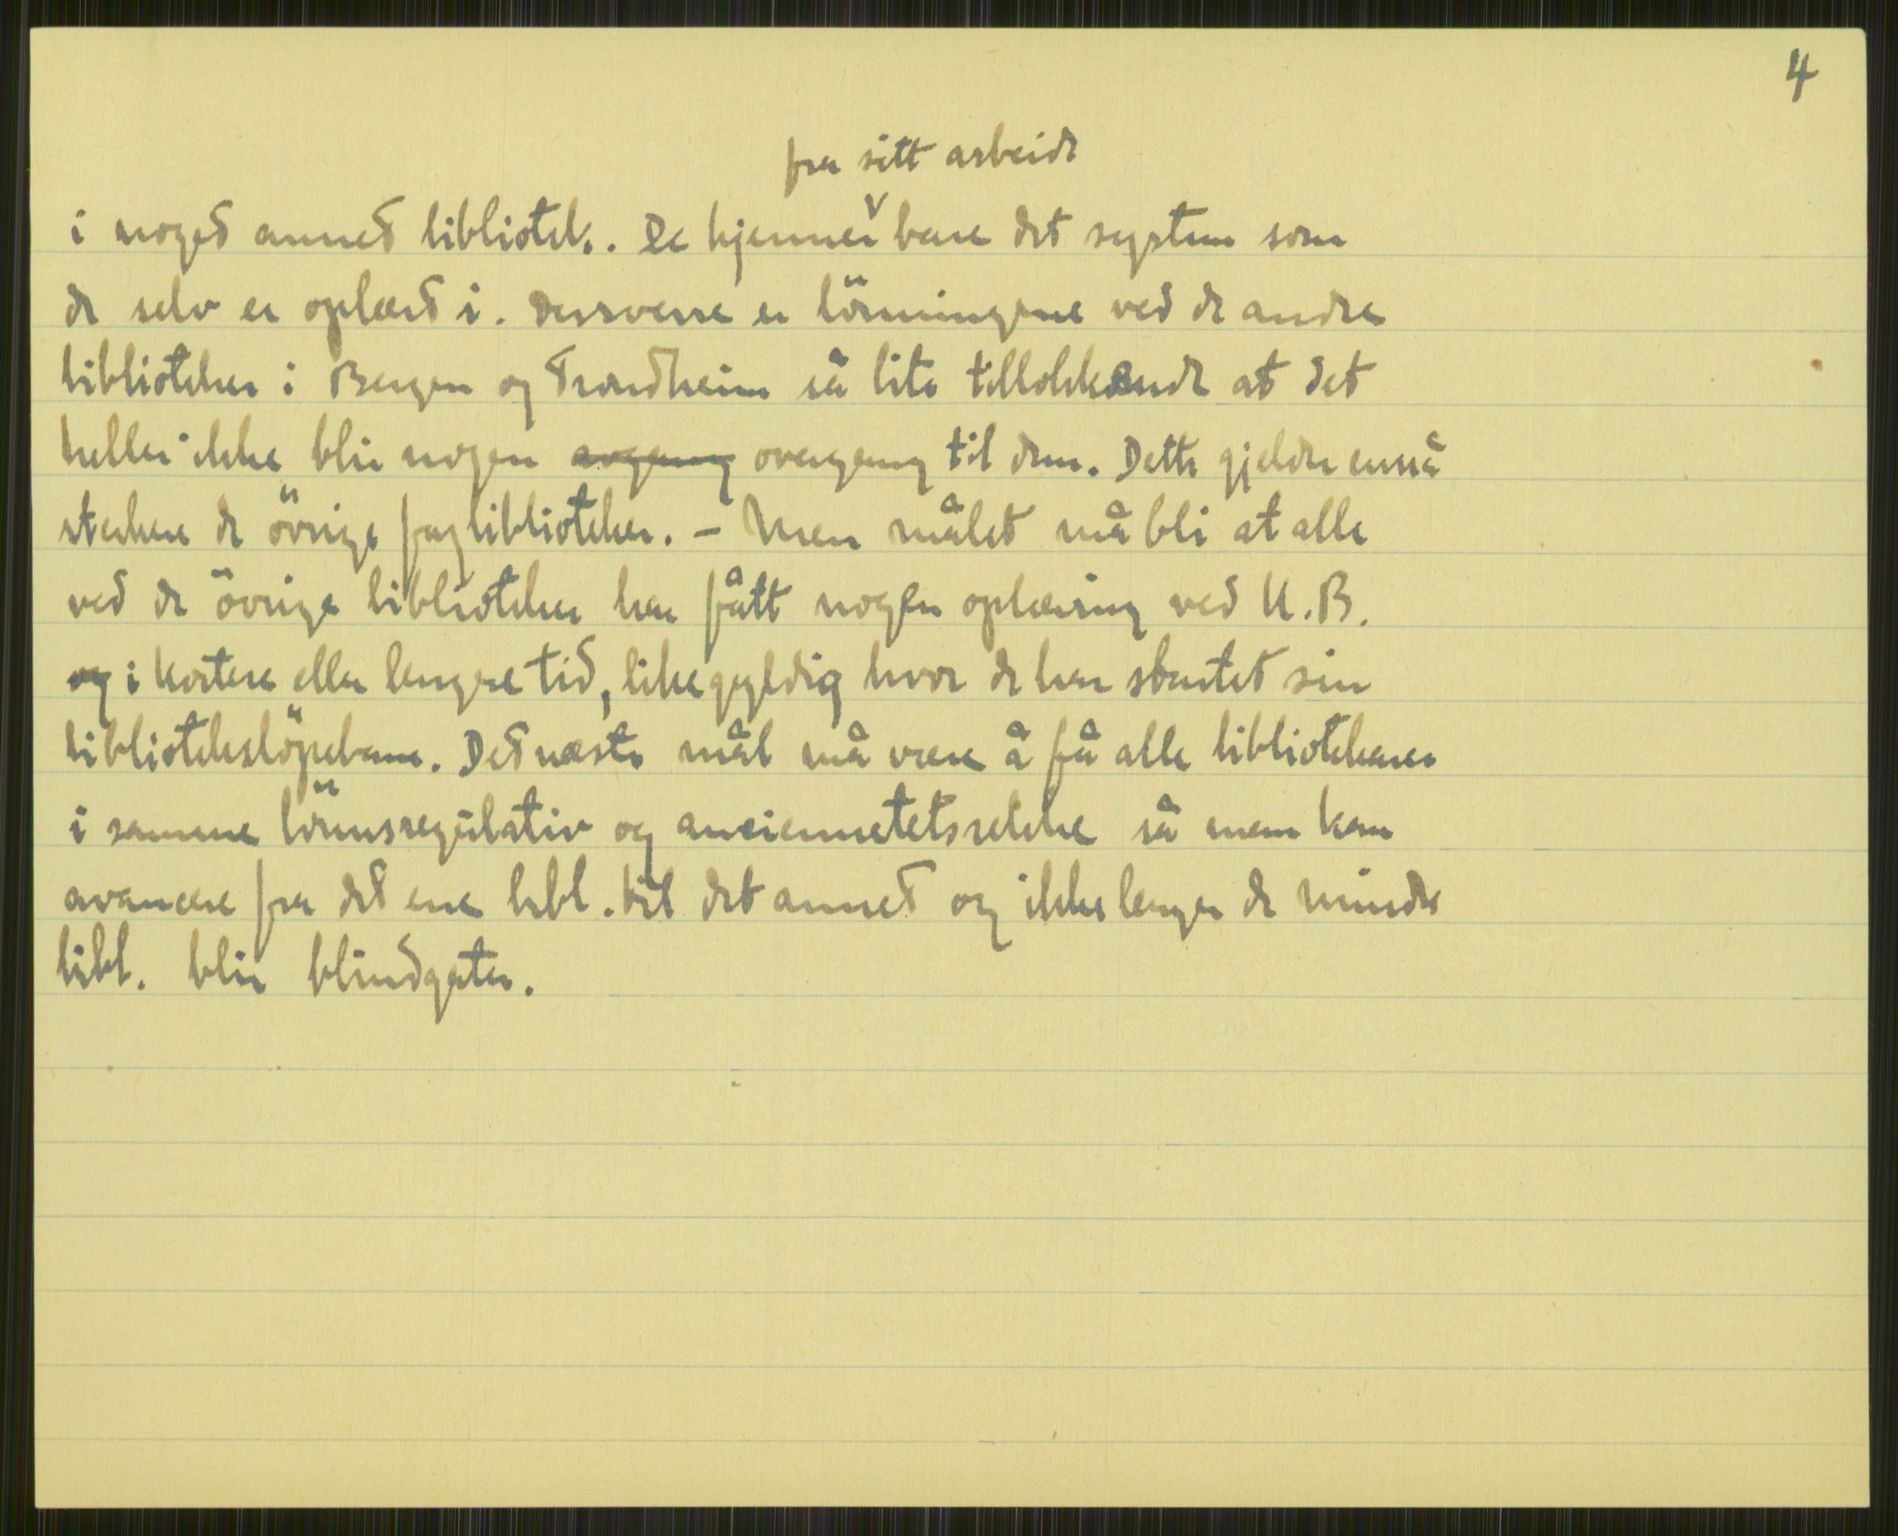 4
fra sitt arbeide
i noget annet bibliotek. De kjenner bare det system som
de selv er oplært i. Dessverre er lönningene ved de andre
biblioteker i Bergen og Trondheim så lite tillokkende at det
heller ikke blir nogen avgang overgang til dem. Dette gjelder ennå
sterkere de övrige fagbiblioteker. – Men målet må bli at alle
ved de övrige biblioteker har fått nogen oplæring ved U.B.
og i kortere eller lengere tid, likegyldig hvor de har startet sin
bibliotekslöpebane. Det næste mål må være å få alle bibliotekarer
i samme lönnsregulativ og ansiennetetsrekke så man kan
avancere fra det ene bibl. til det annet og ikke lenger de mindre
bibl. blir blindgater.